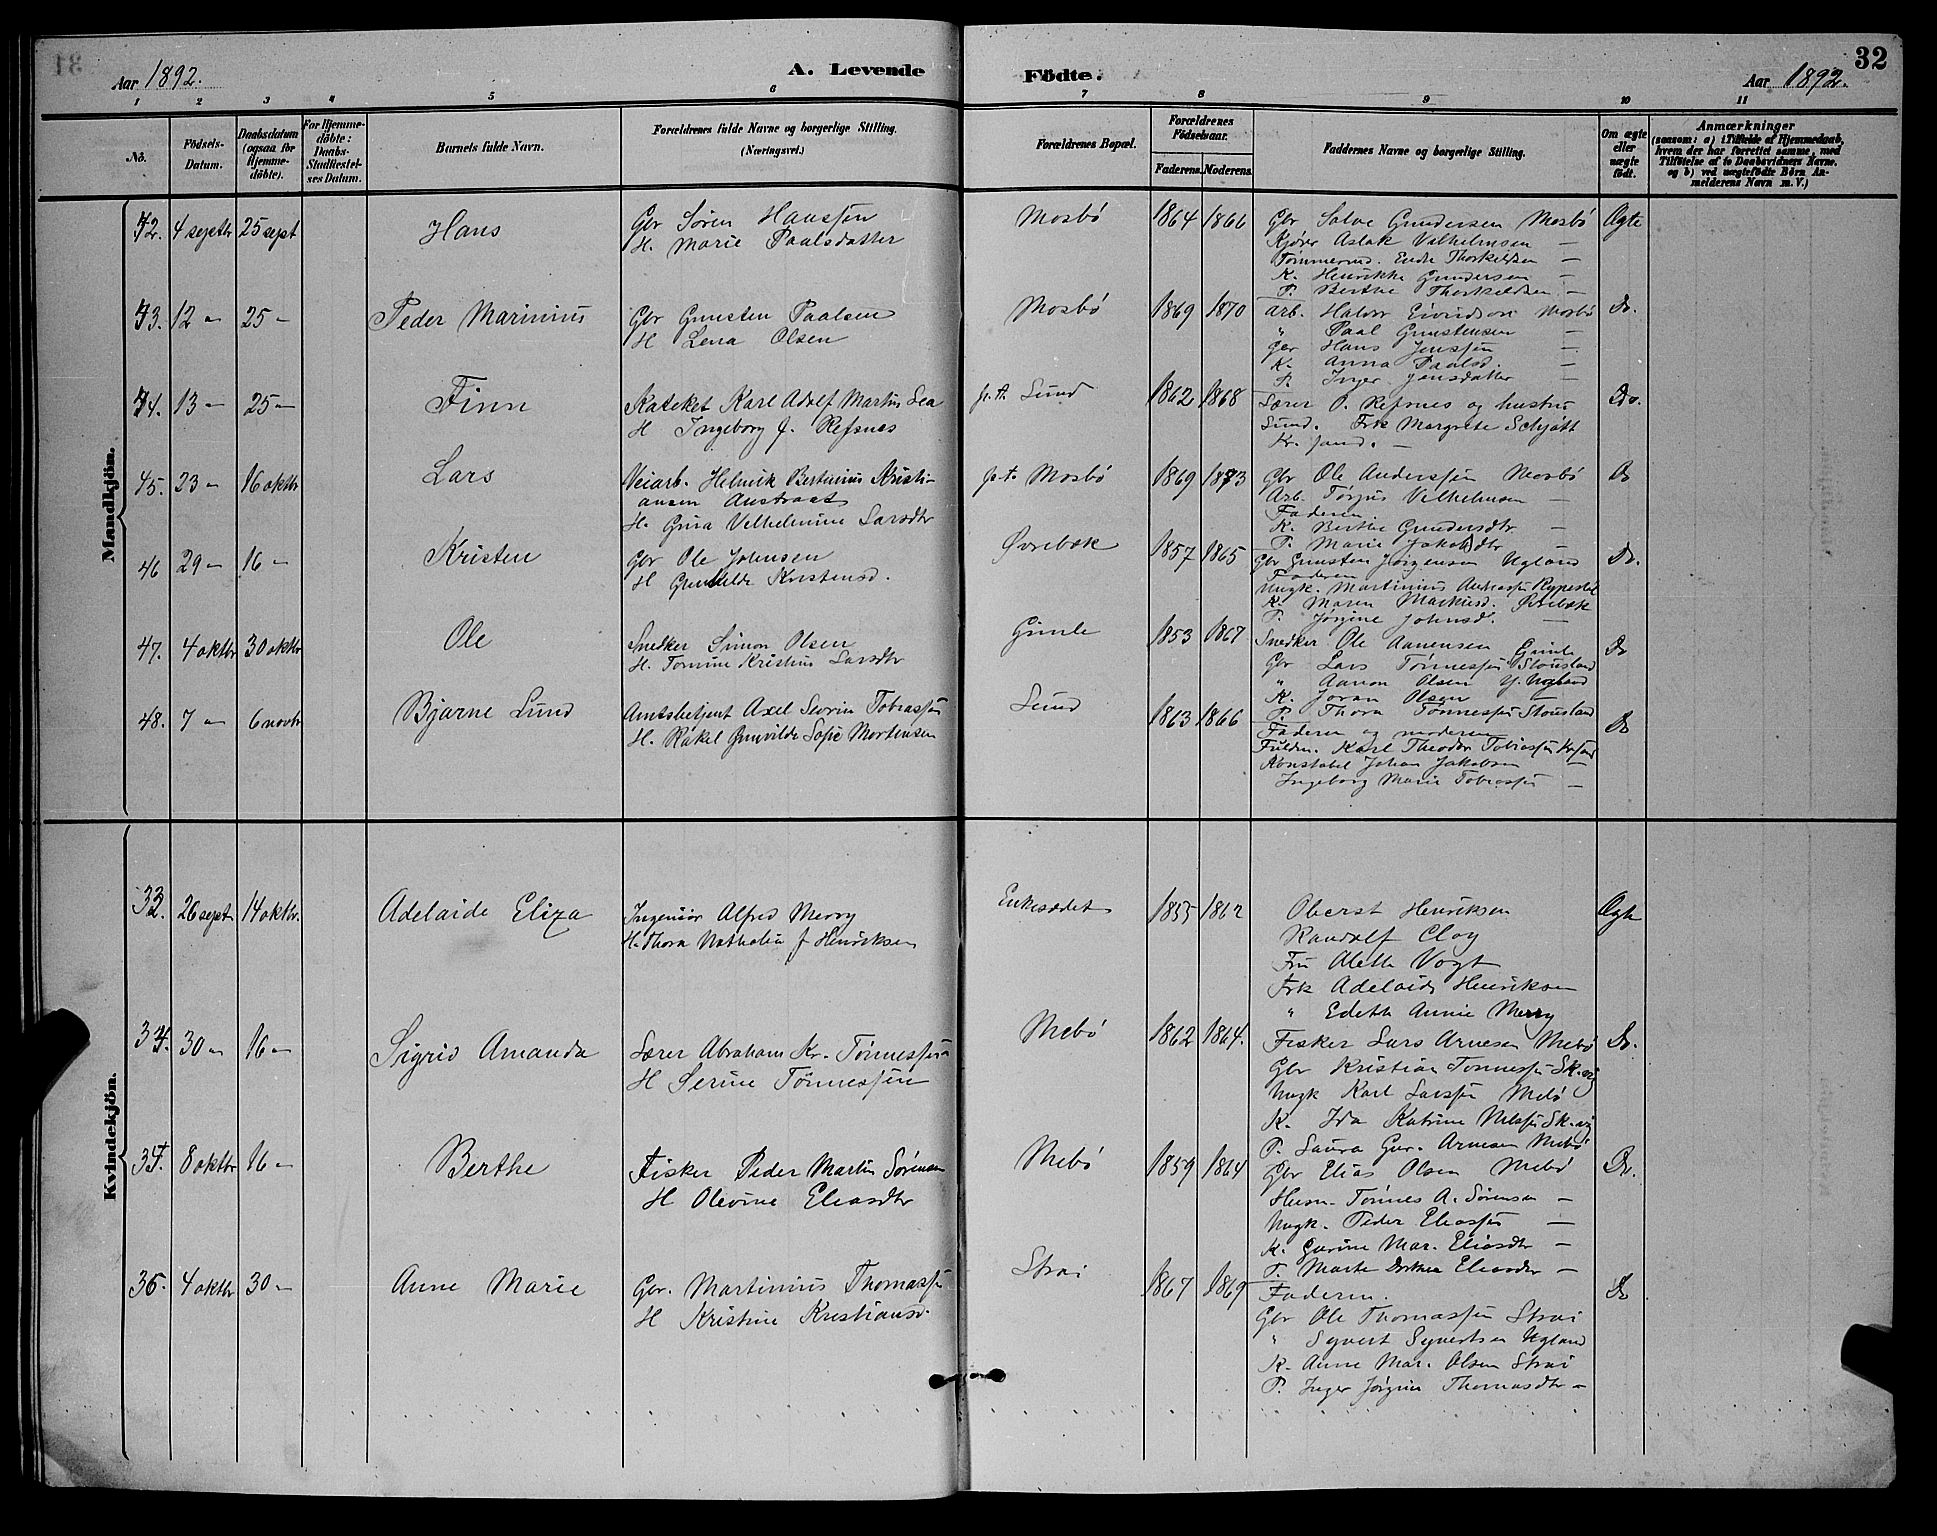 31
32
Aar 1892.
A. Levende Födte.
Aar 1892.
1 2 3 4 5 6 7 8 9 10 11
No.
Födsels-Datum.
Daabsdatum (ogsaa for Hjemmedöbte).
For Hjemmedöbte: Daabs-Stadfæstelses Datum.
Barnets fulde Navn.
Forældrenes fulde Navne og borgerlige Stilling. (Næringsvei.)
Forældrenes Bopæl.
Forældrenes Födselsaar.
Faderens. Moderens.
Faddernes Navne og borgerlige Stilling.
Om ægte eller uægte født.
Anmærkninger
(saasom: a) i Tilfælde af Hjemmedaab, hvem der har forrettet samme, med Tilföielse af to Daabsvidners Navne. og b) ved uægtefödte Börn Anmelderens Navn m. V.)
Mandkjön.
42. 4 septbr 25 sept Hans
Gbr Søren Hanssen
H. Marie Paalsdatter
Mosbø 1864 1866
Gbr Salve Gundersen Mosbø Ægte
Kjører Aslak Vilhelmsen —
Tømmermd. Endre Thorkildsen —
K. Henrikke Gundersen —
P. Berthe Thorkildsen —
43. 12 " 25 " Peder Marinius
Gbr Gunsten Paalsen
H Lena Olsen
Mosbø 1869 1870
Arb. Halvor Eivindson Mosbø Do.
" Paal Gunstensen —
Gbr Hans Jenssen —
K. Anna Paalsd. —
P. Inger Jensdatter —
44. 13 " 25 " Finn
Kateket Karl Adolf Martin Lea
H Ingeborg f. Refsnes
p.t. Lund 1862 1868
Lærer O. Refsnes og hustru Do.
Lund. Frk Margrete Schjøtt
Kr.sand. —
45. 23 " 16 oktbr Lars
Veiarb. Helmik Bertinius Kristiansen Austraat
H. Gina Vilhelmine Larsdtr
p.t. Mosbø 1869 1873
Gbr Ole Anderssen Mosbø Do
Arb. Tørjus Vilhelmsen —
Faderen
K. Berthe Gundersdtr —
P. Marie Jakobsdtr —
46 29 " 16 " Kristen
Gbr Ole Johnsen
H Gunhilde Kristensd.
Øvrebøk 1857 1865
Gbr Gunsten Jørgensen Ugland Do.
Faderen
Ungk. Martinius Andreassen Rypestøl
K. Maren Markusd. Øvrebøk
P. Jørgine Johnsd. —
47. 4 oktbr 30 oktbr Ole
Snedker Simon Olsen
H. Tomine Kristine Larsdtr
Gimle 1853 1867
Snedker Ole Aanensen Gimle Do
Gbr Lars Tønnessen Stousland
" Aanon Olsen Y. Vogland
K. Joran Olsen —
P. Thora Tønnessen Stousland
48. 7 " 6 novbr Bjarne Lund
Amtsbetjent Axel Severin Tobiassen
H. Rakel Gunvilde Sofie Mortensen
Lund 1863 1866
Faderen og moderen Do
Fuldm. Karl Theodor Tobiassen Kr.sand
Konstabel Johan Jakobsen —
Ingeborg Marie Tobiassen —
Kvindekjön.
33. 26 sept 14 oktbr. Adelaide Eliza
Ingeniør Alfred Merry
H. Thora Nathalia f Henriksen
Enkesædet 1855 1862
Oberst Henriksen Ægte
Randolf Clay
Fru Aleth Vogt
Frk Adelaide Henriksen
" Edeth Annie Merry
34. 30 " 16 " Sigrid Amanda
Lærer Abraham Kr. Tønnessen
H Serine Tönnessen
Mebø 1862 1864.
Fisker Lars Arnesen Mebø Do.
Gbr Kristian Tønnessen Sk.vig
Ungk Karl Larssen Mebø
K. Ida Katrine Nilssen Sk.vig
P. Laura Gur. Arnesen Mebø
35. 8 oktbr 16 " Berthe
Fisker Peder Martin Sørensen
H Olevine Eleasdtr
Mebø 1859 1864
Gbr Elias Olsen Mebø Do.
Husm. Tønnes A. Sørensen —
Ungk. Peder Eliassen —
K. Gurine Mar. Eliasdtr —
P. Marte Dorthea Eleasdtr —
36. 4 oktbr 30 " Anne Marie
Gbr. Martinius Thomassen
H Kristine Kristiansd.
Strai 1867 1869
Faderen. Do
Gbr Ole Thomassen Strai
" Syvert Syvertsen Ugland
K. Anne Mar. Olsen Strai
P. Inger Jørgine Thomasdtr —